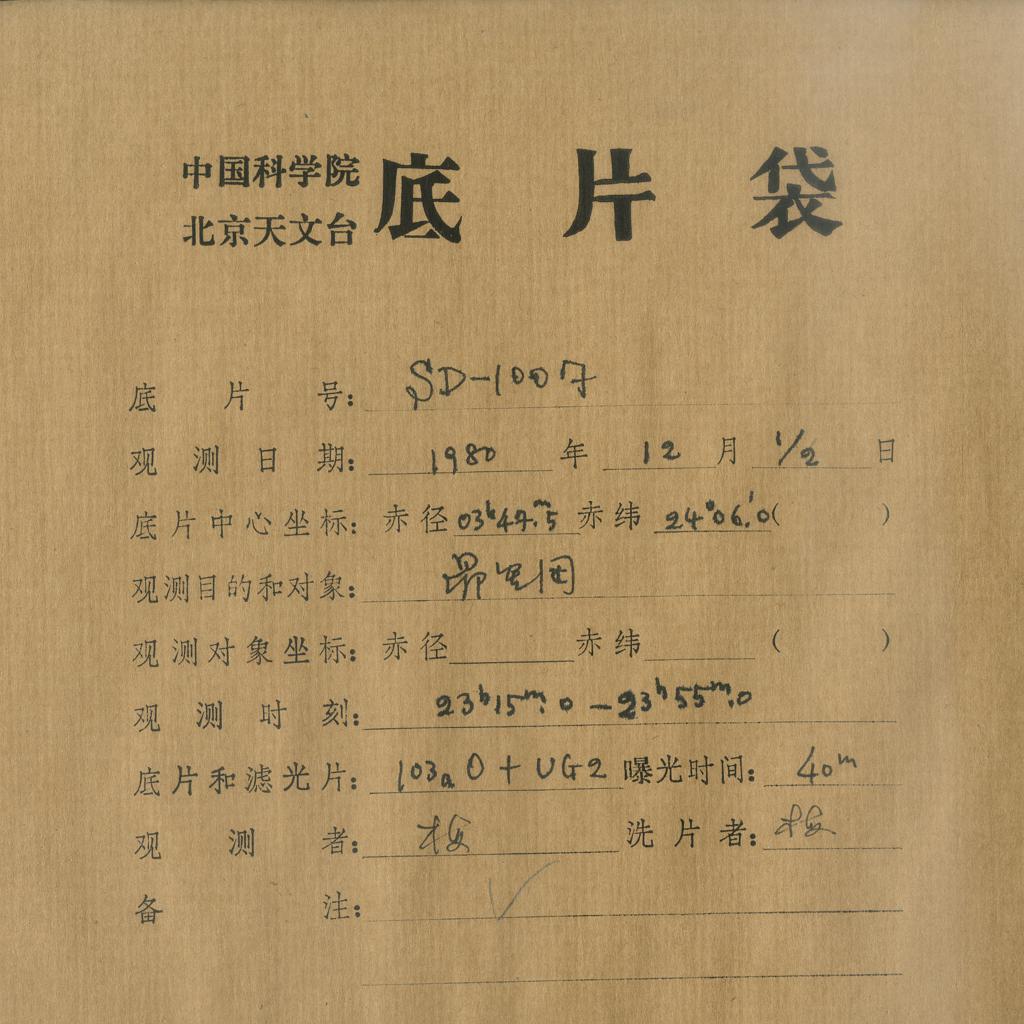 中国科学院
北京天文台
底片袋
底片号: SD-1007
观测日期: 1980 年 12 月 1/2 日
底片中心坐标: 赤径 03ʰ47ᵐ.5 赤纬 24°06'.0 ( )
观测目的和对象: 昴星团
观测对象坐标: 赤径 赤纬 ( )
观测时刻: 23ʰ15ᵐ.0 – 23ʰ55ᵐ.0
底片和滤光片: 103aO + UG2 曝光时间: 40ᵐ
观测者: 梅 洗片者: 梅
备注: √